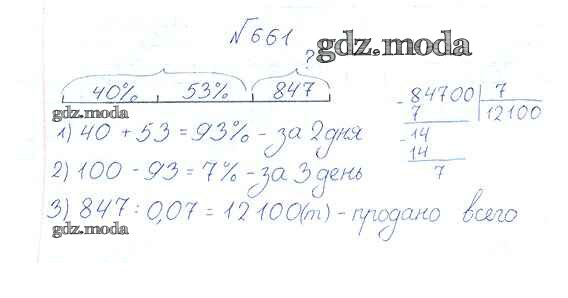 №661
gdz.moda
?
40% 53% 847
gdz.moda
1) 40 + 53 = 93% - за 2 дня
2) 100 - 93 = 7% - за 3 день
3) 847 : 0,07 = 12100(т) - продано всего
gdz.moda
- 84700 7
7 12100
- 14
14
7